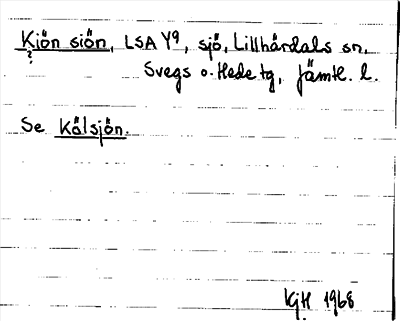 Kiön siön, LSA Y9, sjö, Lillhärdals sn,
?
Svegs o. Hede tg, Jämtl. l.
Se Kälsjön.
KGH 1968